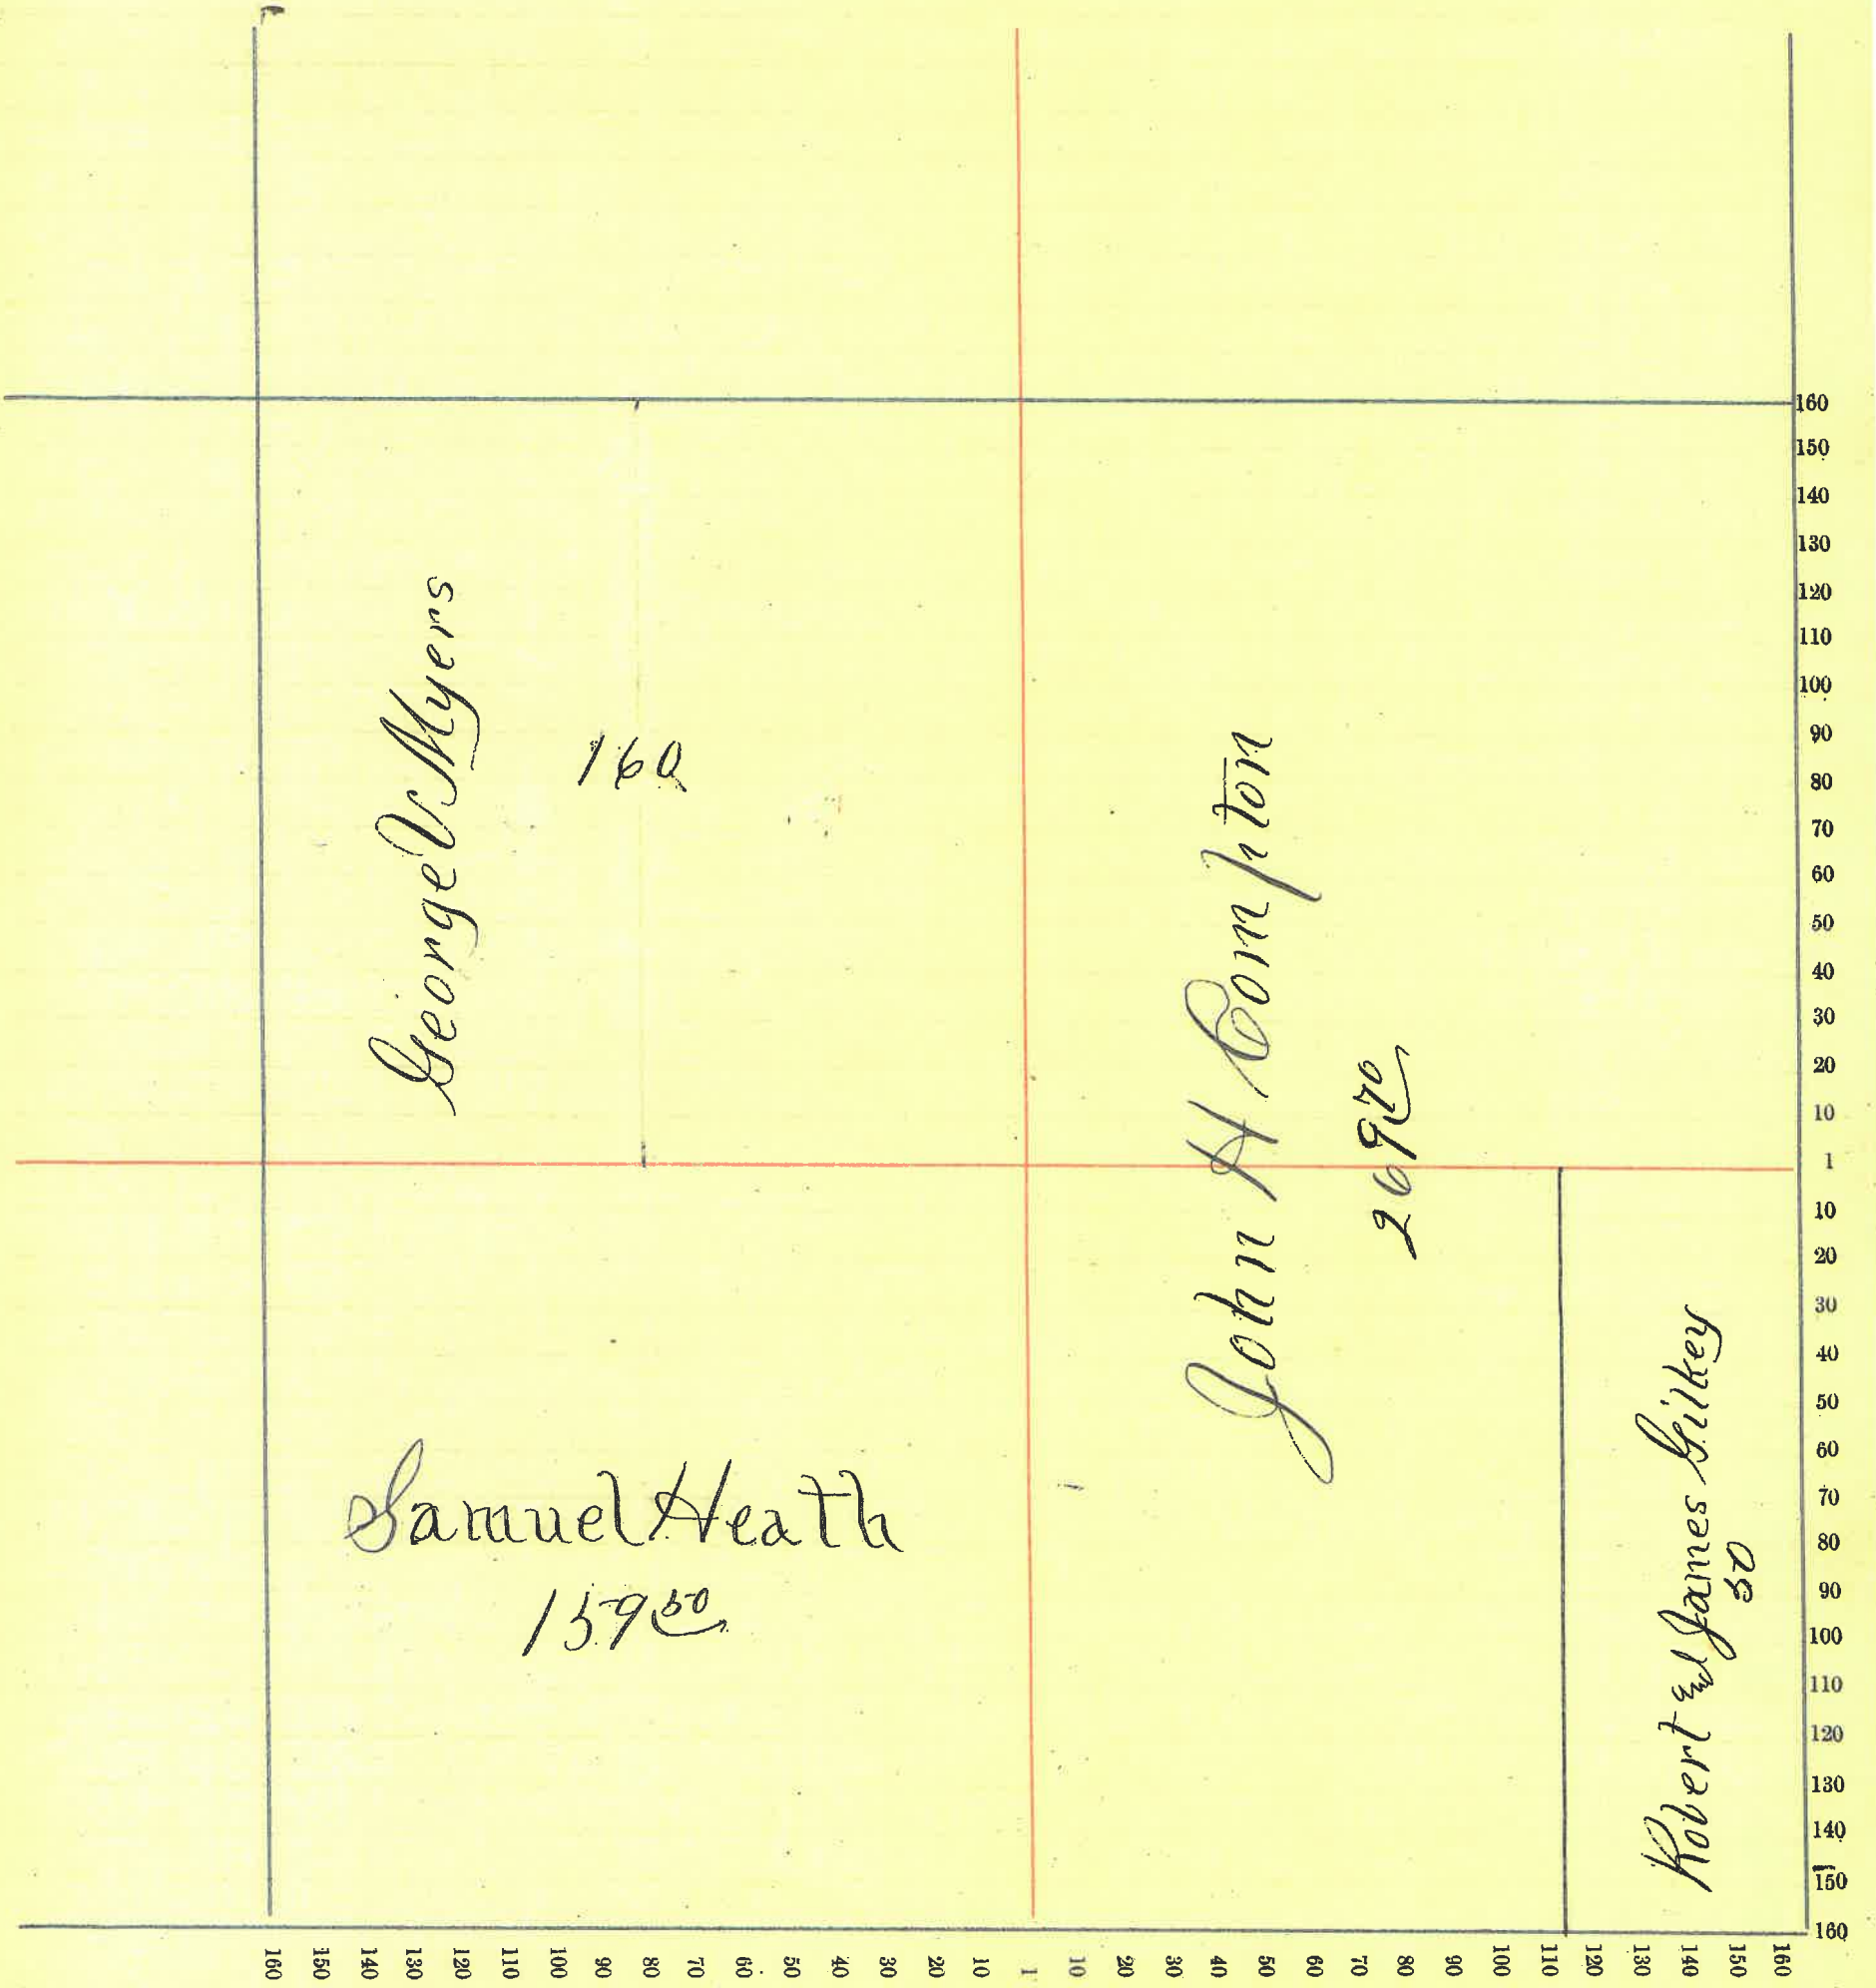 George V Myers
160
John H Compton
269 70
Samuel Heath
159 50
Robert & James Gilkey
50
160
150
140
130
120
110
100
90
80
70
60
50
40
30
20
10
1
10
20
30
40
50
60
70
80
90
100
110
120
130
140
150
160
160 150 140 130 120 110 100 90 80 70 60 50 40 30 20 10 1 10 20 30 40 50 60 70 80 90 100 110 120 130 140 150 160